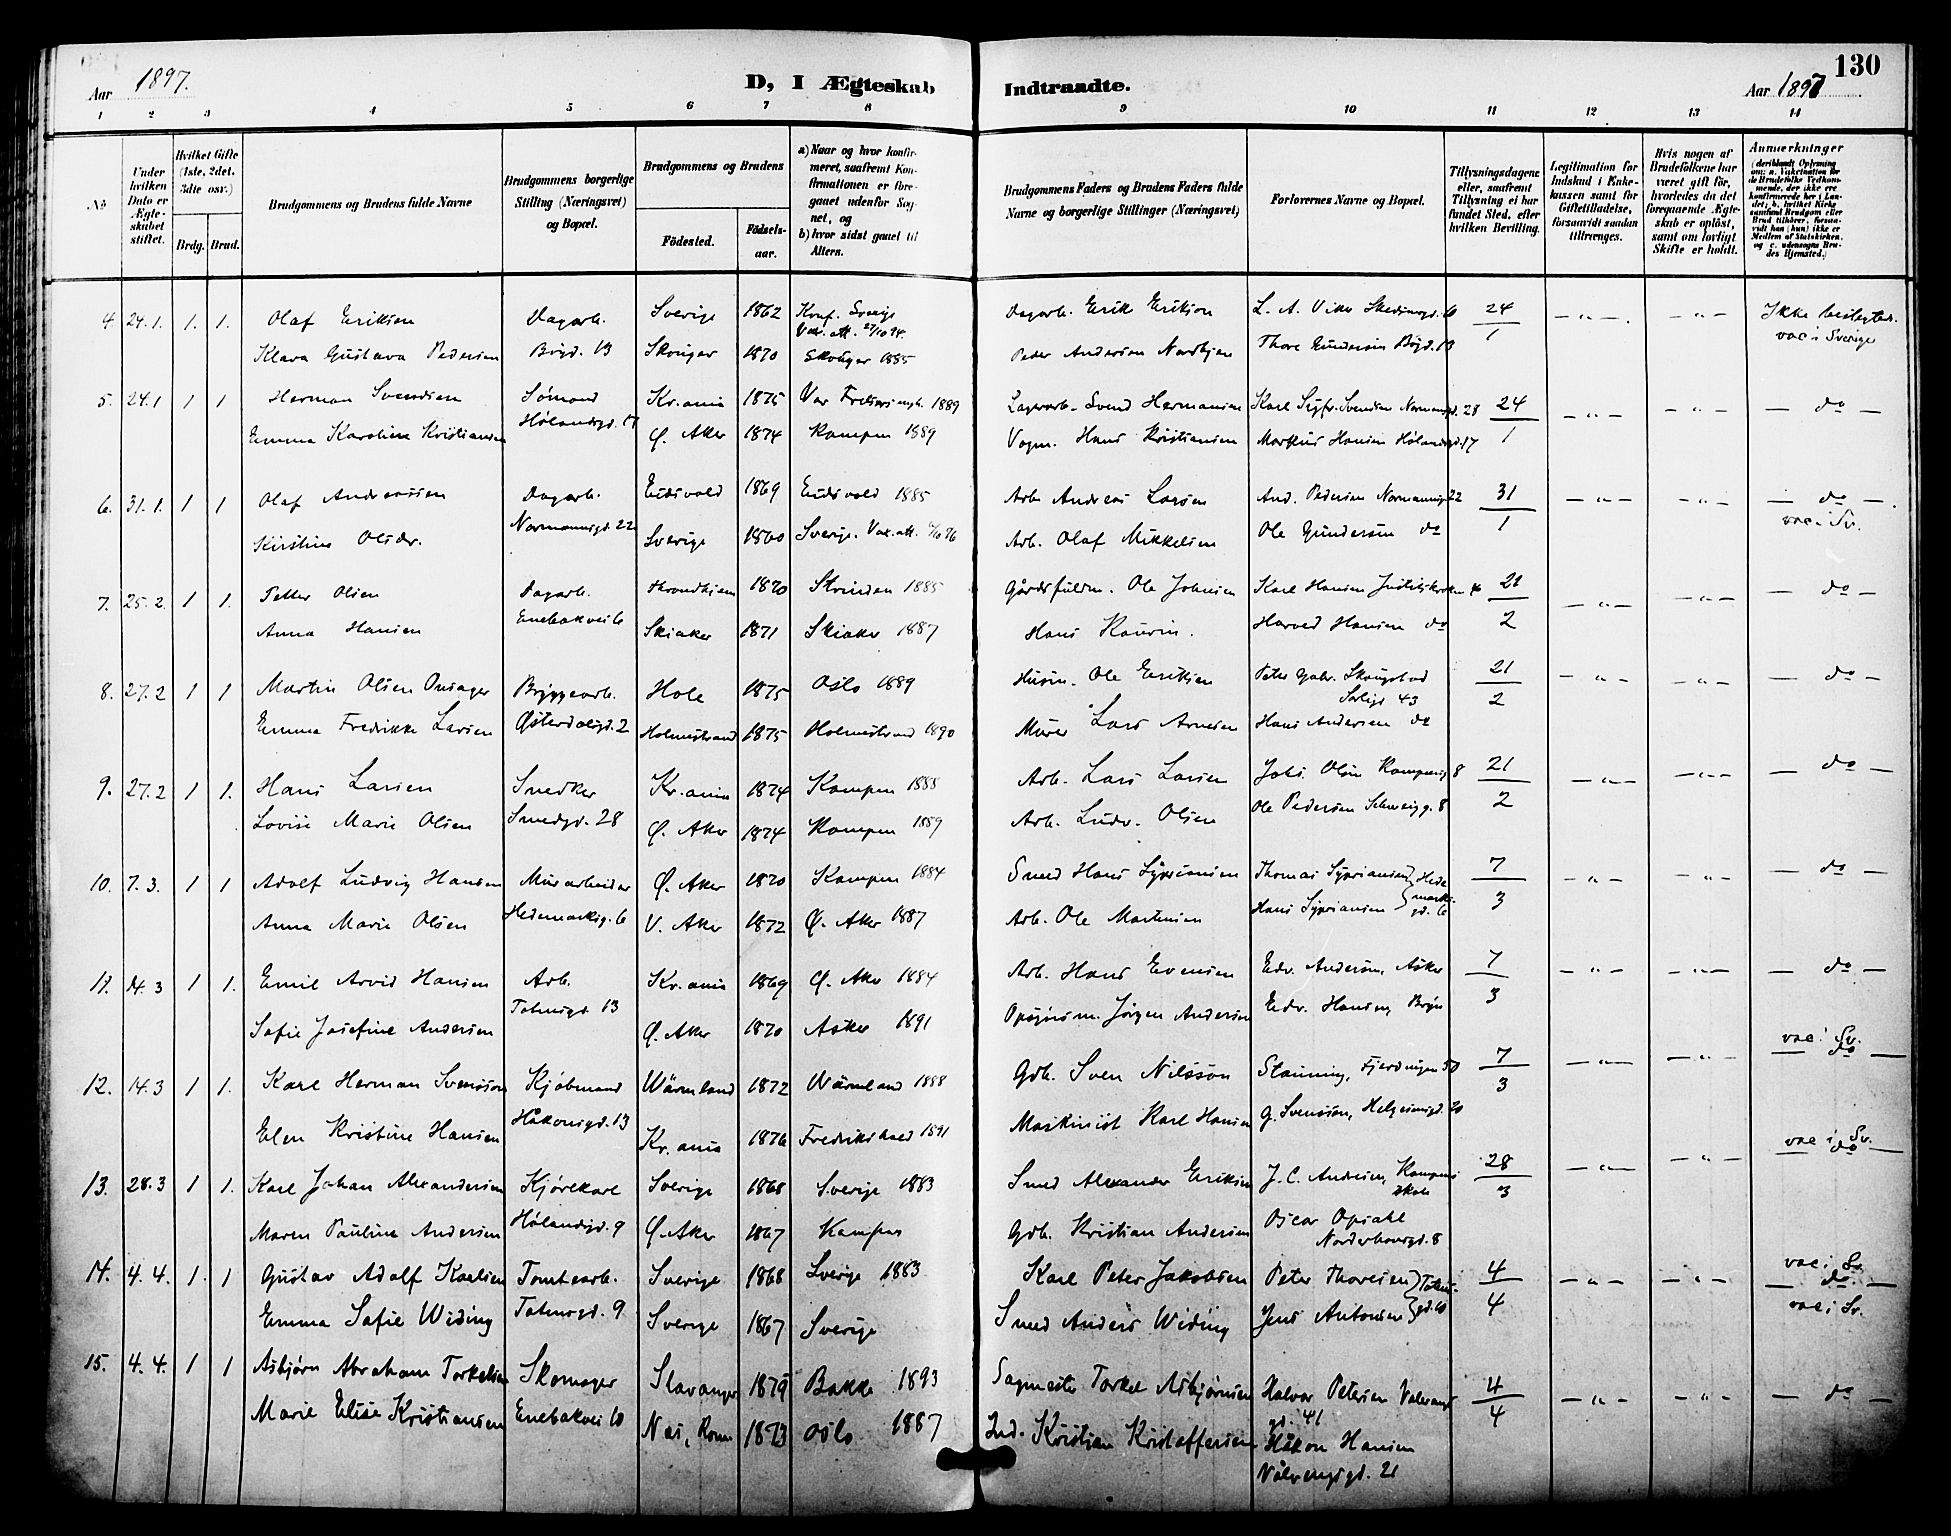 130
Aar 1897. D, I Ægteskab Indtraadte. Aar 1897
1 2 3 4 5 6 7 8 9 10 11 12 13 14
No.
Under hvilken Dato er Ægteskabet stiftet.
Hvilket Gifte (1ste, 2det, 3die osv.)
Brdg. Brud.
Brudgommens og Brudens fulde Navne
Brudgommens borgerlige Stilling (Næringsvei) og Bopæl.
Brudgommens og Brudens
Fødested. Fødselsaar.
a) Naar og hvor konfirmeret, saafremt Konfirmationen er foregaaet udenfor Sognet, og
b) hvor sidst gaaet til Alters.
Brudgommens Faders og Brudens Faders fulde Navne og borgerlige Stillinger (Næringsvei)
Forlovernes Navne og Bopæl.
Tillysningsdagene eller, saafremt Tillysning ei har fundet Sted, efter hvilken Bevilling.
Legitimation for Indskud i Enkekassen samt for Giftetilladelse, forsaavidt saadan tiltrænges.
Hvis nogen af Brudefolkene har været gift før, hvorledes da det foregaaende Ægteskab er opløst, samt om lovligt Skifte er holdt.
Anmærkninger
(deriblandt Oplysning om: a. Vakcination for de Brudefolks Vedkommende, der ikke ere konfirmerede her i Landet; b. hvilket Kirkesamfund Brudgom eller Brud tilhører, forsaavidt han (hun) ikke er Medlem af Statskirken, og c. udensogns Brudes Hjemsted.)
4. 24.1. 1. 1. Olaf Eriksen Dagarb. Sverige 1862 Konf. Sverige Dagarb. Erik Erikson L. A. Viker 24/1 Ikke beslegtede.
Vac. att. 27/10 94. vac i Sverige
Klara Gustava Pedersen Bøgd. 13 Skouger 1870 Skouger 1885 Peder Andersen Thore Gundersen Bøgd. 13
5. 24.1 1 1 Herman Svendsen Sømand Kr.ania 1875 1889 Lagerarb. Svend Hermansen Karl Sigfr. Svendsen Normannsgd. 28 24/1 do
Emma Karoline Kristiansen Hølandsgd. 17 Ø. Aker 1874 Kampen 1889 Vogm. Hans Kristiansen Markus Hansen Hølandsgd. 17
6. 31.1. 1 1 Olaf Andreassen Dagarb. Eidsvold 1869 Eidsvold 1885 Arb. Andreas Larsen And. Pedersen Normannsg. 22 31/1 do
vac i Sv.
Kirstine Olsdr. Normannsgd. 22 Sverige 1860 Sverige. Vac. att. Arb. Olaf Mikkelsen Ole Gundersen do
7. 25.2. 1 1. Petter Olsen Dagarb. Throndhjem 1870 Strinden 1885 Gårdsfuldm. Ole Johnsen Karl Hansen 21/2 do
Anna Hansen Enebakvei 6 Skiaker 1871 Skiaker 1887 Hans Harved Hansen do
8. 27.2 1 1 Martin Olsen Onsager Bryggearb. Hole 1875 Oslo 1889 Husm. Ole Eriksen Peter Gabr. Skougstad 21/2 do
Sørligt 43
Emma Fredrikke Larsen Østerdalsgd. 2 Holmestrand 1875 Holmestrand 1890 Murer Lars Arnesen Hans Andersen do
9. 27.2 1 1. Hans Larsen Snedker Kr.ania 1874 Kampen 1888 Arb. Lars Larsen Johs. Olsen Kampensg. 8 21/2 do
Lovise Marie Olsen Smedgd. 28 Ø. Aker 1874 Kampen 1889 Arb. Ludv. Olsen Ole Pedersen Schweigg. 8
10. 7.3. 1 1 Adolf Ludvig Hansen Murarbeider Ø. Aker 1870 Kampen 1884 Smed Hans Sypriansen Thomas Sypriansen Hedemarksgd. 6 7/3 do
Anna Marie Olsen Hedemarksg. 6 V. Aker 1872 Ø. Aker 1887 Arb. Ole Martinsen Hans Sypriansen
11. 14.3 1 1. Emil Arvid Hansen Arb. Kr.ania 1869 Ø. Aker 1884 Arb. Hans Evensen Edv. Andersen, Asker 7/3 do
Sofie Josefine Andersen Totensgd. 13 Ø. Aker 1870 Asker 1891 Opsynsm. Jørgen Andersen Edv. Hansen, Bryn
vac i Sv.
12. 14.3 1 1. Karl Herman Svensson Kjøbmand Wärmland 1872 Wärmland 1888 Gdb. Sven Nilsson Stanning, Fjerdingen 50 7/3 do
Elen Kristine Hansen Håkonsgd. 13 Kr.ania 1876 Fredrikshald 1891 Maskinist Karl Hansen G. Svensson, Helgesensgd. 20
vac i Sv.
13. 28.3 1 1. Karl Johan Alexandersen Kjørekarl Sverige 1868 Sverige 1883 Smed Alexander Eriksen J. C. Andresen, Kampens Skole 28/3 do
Maren Pauline Andersen Hølandsgd. 9 Ø. Aker 1867 Kampen Gdb. Kristian Andersen Oscar Opsahl
Norderhovsgd. 8
vac i Sv.
14. 4.4. 1. 1 Gustav Adolf Karlsen Tomtearb. Sverige 1868 Sverige 1883 Karl Peter Jakobsen Peter Thoresen Totensgd. 10 4/4 do.
Emma Sofie Widing Totensgd. 9 Sverige 1867 Sverige Smed Anders Widing Jens Antonsen vac i Sv.
15. 4.4. 1 1 Asbjørn Abraham Torkelsen Skomager Stavanger 1879 Bakke 1893 Sagmester Torkel Asbjørnsen Halvor Petersen 4/4 do
gd. 41
Marie Elise Kristiansen Enebakvei 10 Nes, Rom 1873 Oslo 1887 Ind. Kristian Kristoffersen Håkon Hansen
Vålrengsgd. 21